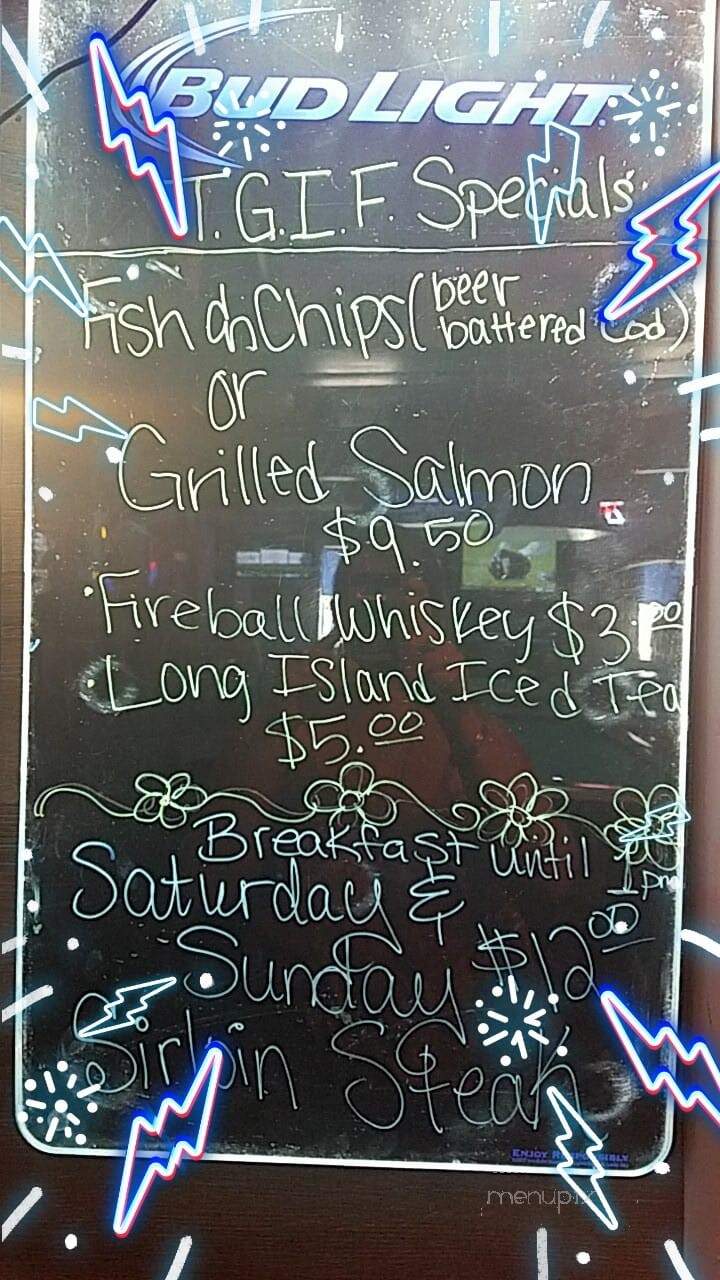 BUD LIGHT
T.G.I.F. Specials
Fish n Chips (beer battered Cod)
or
Grilled Salmon
$9.50
·Fireball Whiskey $3.00
·Long Island Iced Tea
$5.00
Breakfast until 1pm
Saturday &
Sunday $12.00
Sirloin Steak
ENJOY RESPONSIBLY
menupix